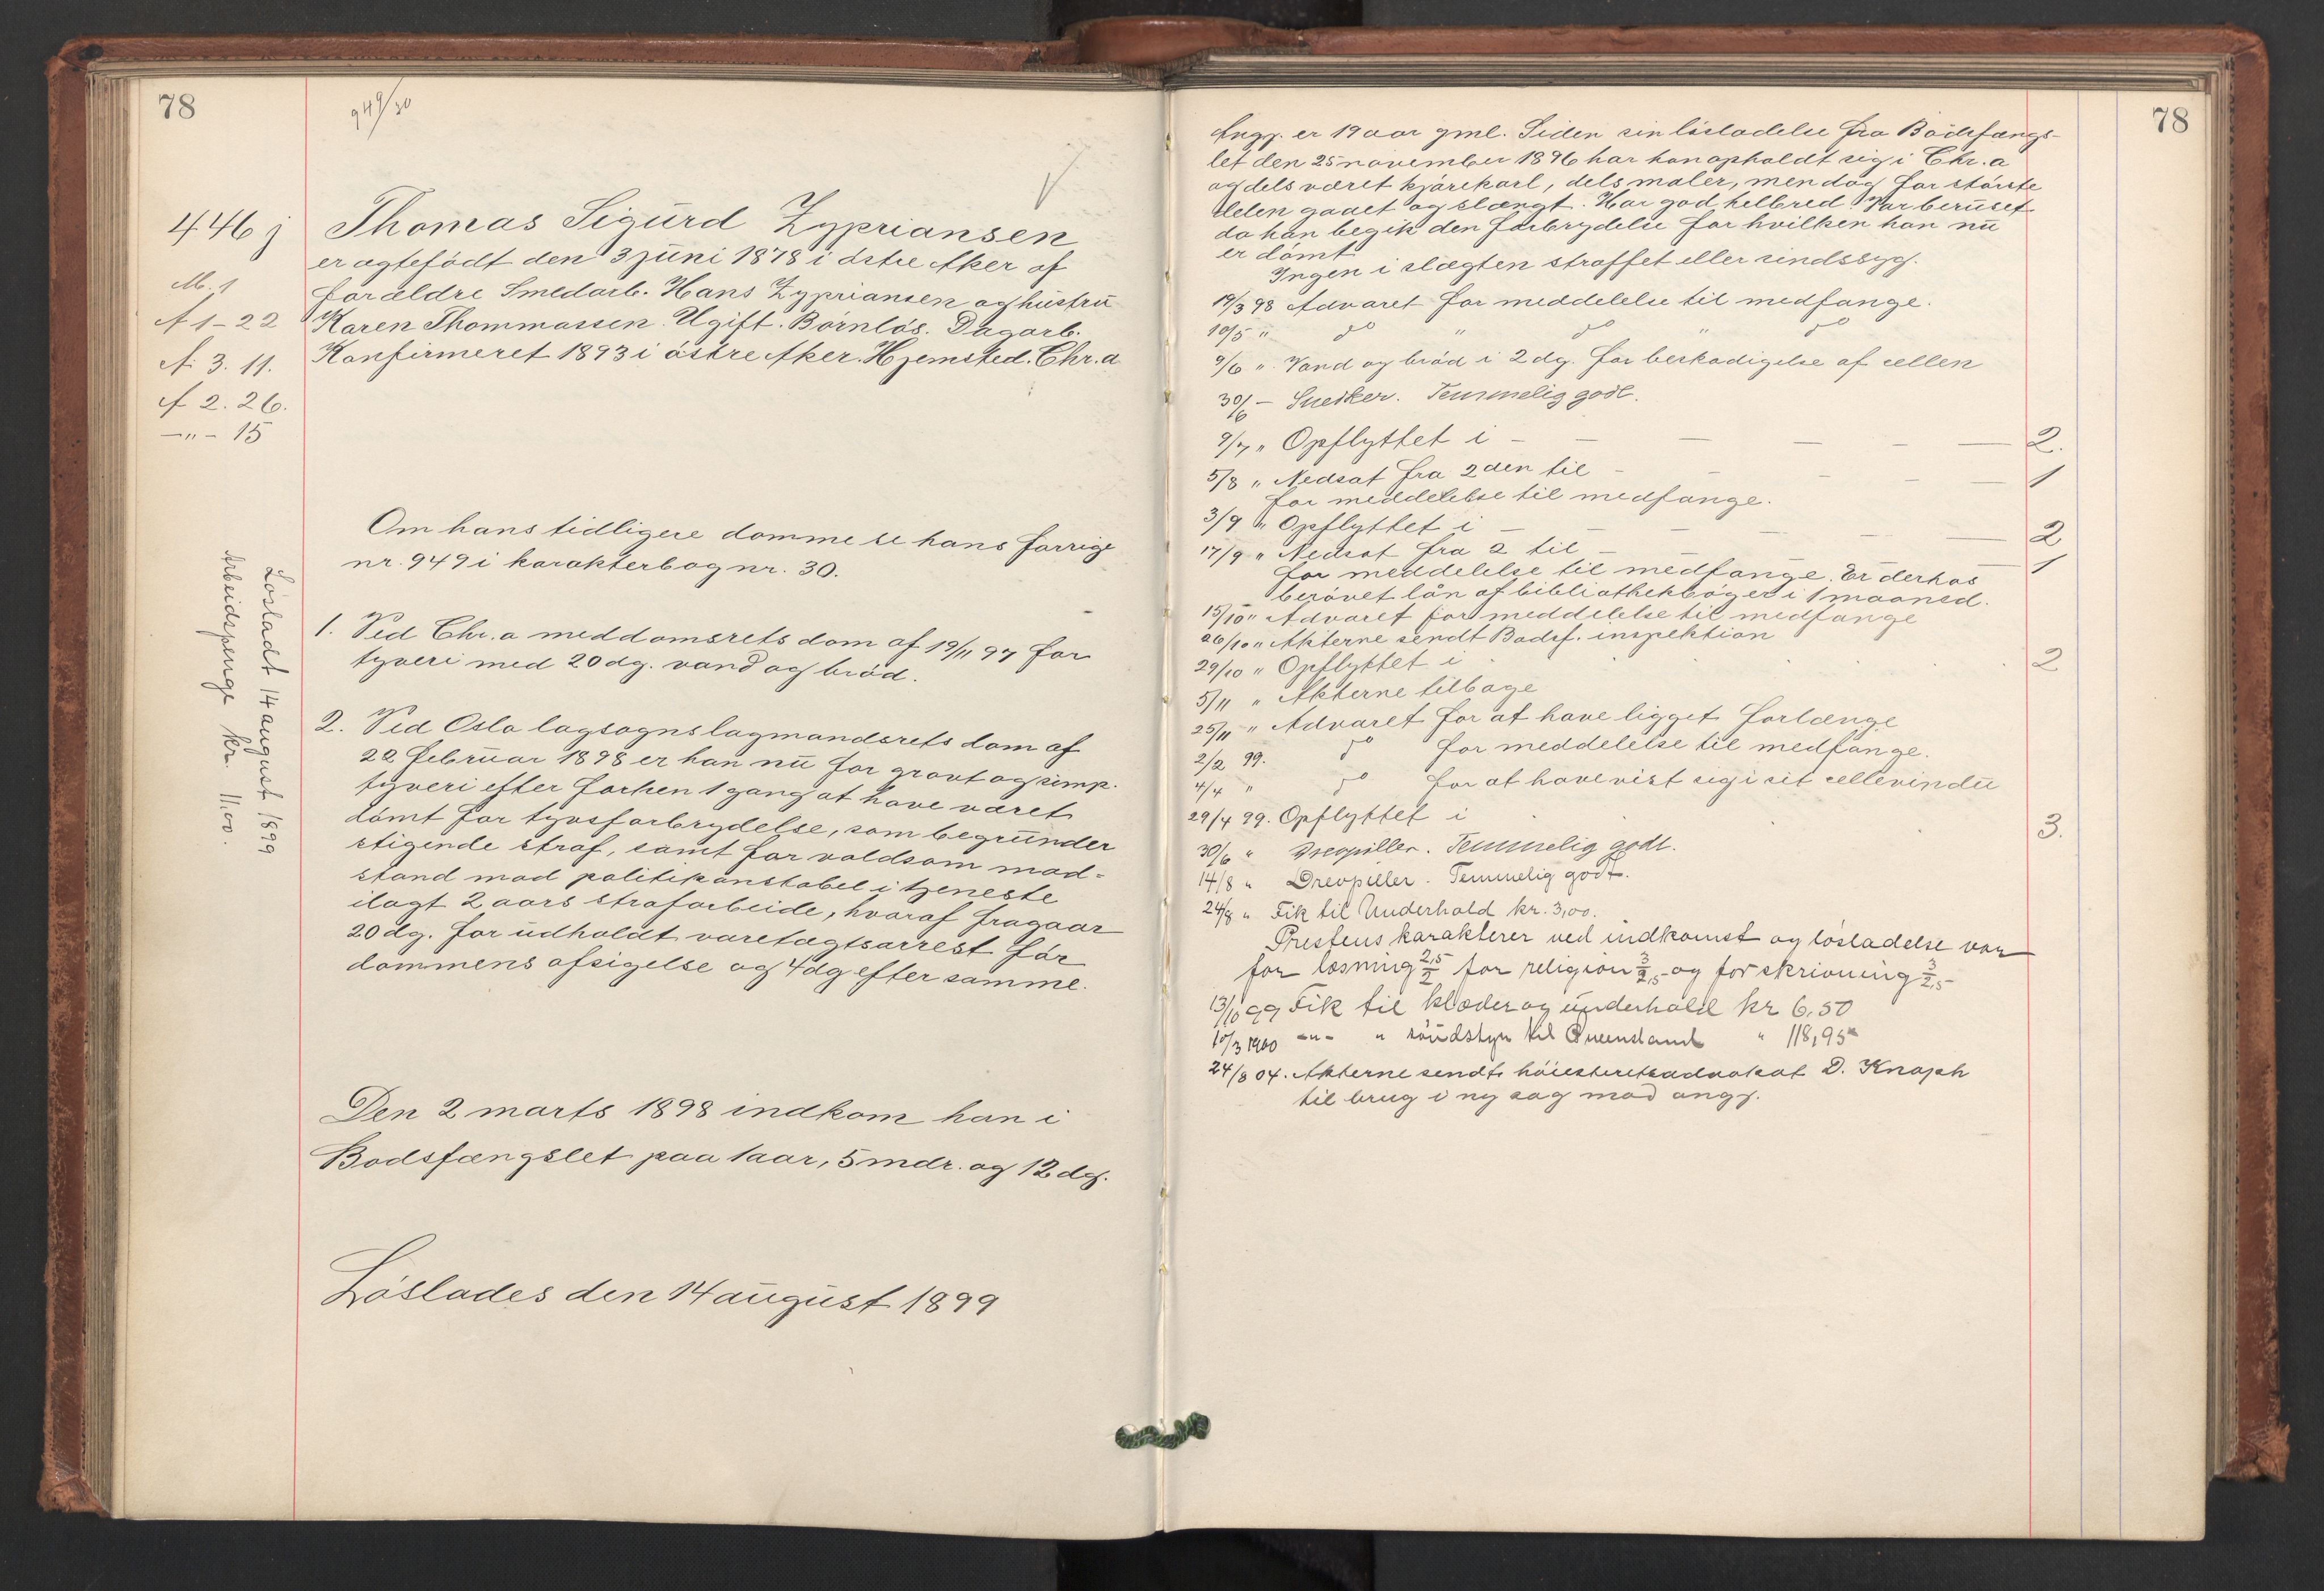 78
949/30
446 j
M. 1
A 1-22
A. 3. 11.
A 2. 26.
—"— 15
Thomas Sigurd Zypriansen
er ægtefødt den 3 juni 1878 i østre Aker af
forældre Smedarb. Hans Zypriansen og hustru
Karen Thommassen. Ugift. Børnløs. Dagarb.
Konfirmeret 1893 i østre Aker. Hjemsted. Chr.a
Om hans tidligere domme se hans forrige
nr. 949 i karakterbog nr. 30.
1. Ved Chr.a meddomsrets dom af 19/11 97 for
tyveri med 20 dg. vand og brød.
2. Ved Oslo lagsogns lagmandsrets dom af
22 februar 1898 er han nu for grovt og simp.
tyveri efter forhen 1 gang at have været
dømt for tyvsforbrydelse, som begrunder
stigende straf, samt for voldsom mod-
stand mod politikonstabel i tjeneste
ilagt 2 aars strafarbeide, hvoraf fragaar
20 dg. for udholdt varetægtsarrest før
dommens afsigelse og 4 dg efter samme.
Løsladt 14 august 1899
Arbeidspenge kr. 11.00.
Den 2 marts 1898 indkom han i
Bodsfængslet paa 1 aar, 5 mdr. og 12 dg.
Løslades den 14 august 1899
78
Angj. er 19 aar gml. Siden sin løsladelse fra Bodsfængs-
let den 25 november 1896 har han opholdt sig i Chr.a
og dels været kjørekarl, dels maler, men dog for største
delen gaaet og slængt. Har god helbred. Var beruset
da han begik den forbrydelse for hvilken han nu
er dømt
Ingen i slægten straffet eller sindssyg.
19/3 98 Advaret for meddelelse til medfange.
10/5 " do " do " do
9/6 " Vand og brød i 2 dg. for beskadigelse af cellen
30/6 – Snedker. Temmelig godt.
9/7 " Opflyttet i – – – – – — 2.
5/8 " Nedsat fra 2den til – – – – — 1
for meddelelse til medfange.
3/9 " Opflyttet i – – – – – — 2
17/9 " Nedsat fra 2 til – – – – — 1
for meddelelse til medfange. Er derhos
berøvet lån af bibliothekbøger i 1 maaned.
15/10 " Advaret for meddelelse til medfange
26/10 " Akterne sendt Bodsf. inspektion
29/10 " Opflyttet i 2
5/11 " Akterne tilbage
25/11 " Advaret for at have ligget forlænge
2/2 99. do for meddelelse til medfange.
4/4 " do for at have vist sig i sit cellevindu
29/4 99. Opflyttet i 3.
30/6 " Drevpiller. Temmelig godt.
14/8 " Drevpiller. Temmelig godt.
24/8 " Fik til Underhold kr. 3,00.
Prestens karakterer ved indkomst og løsladelse var
for læsning 2,5/2 for religion 3/2,5 og for skrivning 3/2,5
13/10 99 Fik til klæder og underhold kr 6,50
10/3 1900 -"- " til Queensland " 118,95
24/8 04. Akterne sendt høiesteretsadvokat D. Knoph
til brug i ny sag mod angj.